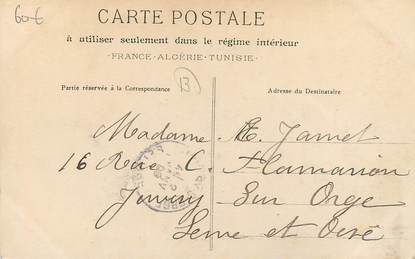 60€
CARTE POSTALE
à utiliser seulement dans le régime intérieur
- FRANCE - ALGÉRIE - TUNISIE -
13
Partie réservée à la Correspondance
Adresse du Destinataire
Madame Jamet
16 Rue C. Flamarion
Juvisy Sur Orge
Seine et Oise